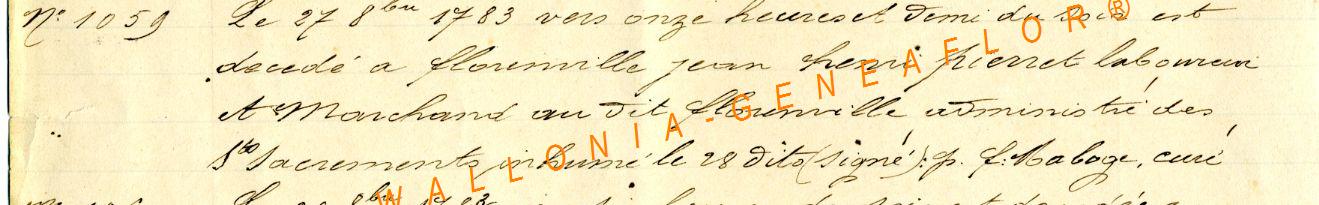 N° 1059 Le 27 8bre 1783 vers onze heures et demi du soir est
decedé a florenville jean henri pierret laboureur
et Marchand au dit florenville administré des
Sts Sacrements inhumé le 28 dito (signé): p. f: Maboge, curé
8bre 1783
WALLONIA-GENEAFLOR®